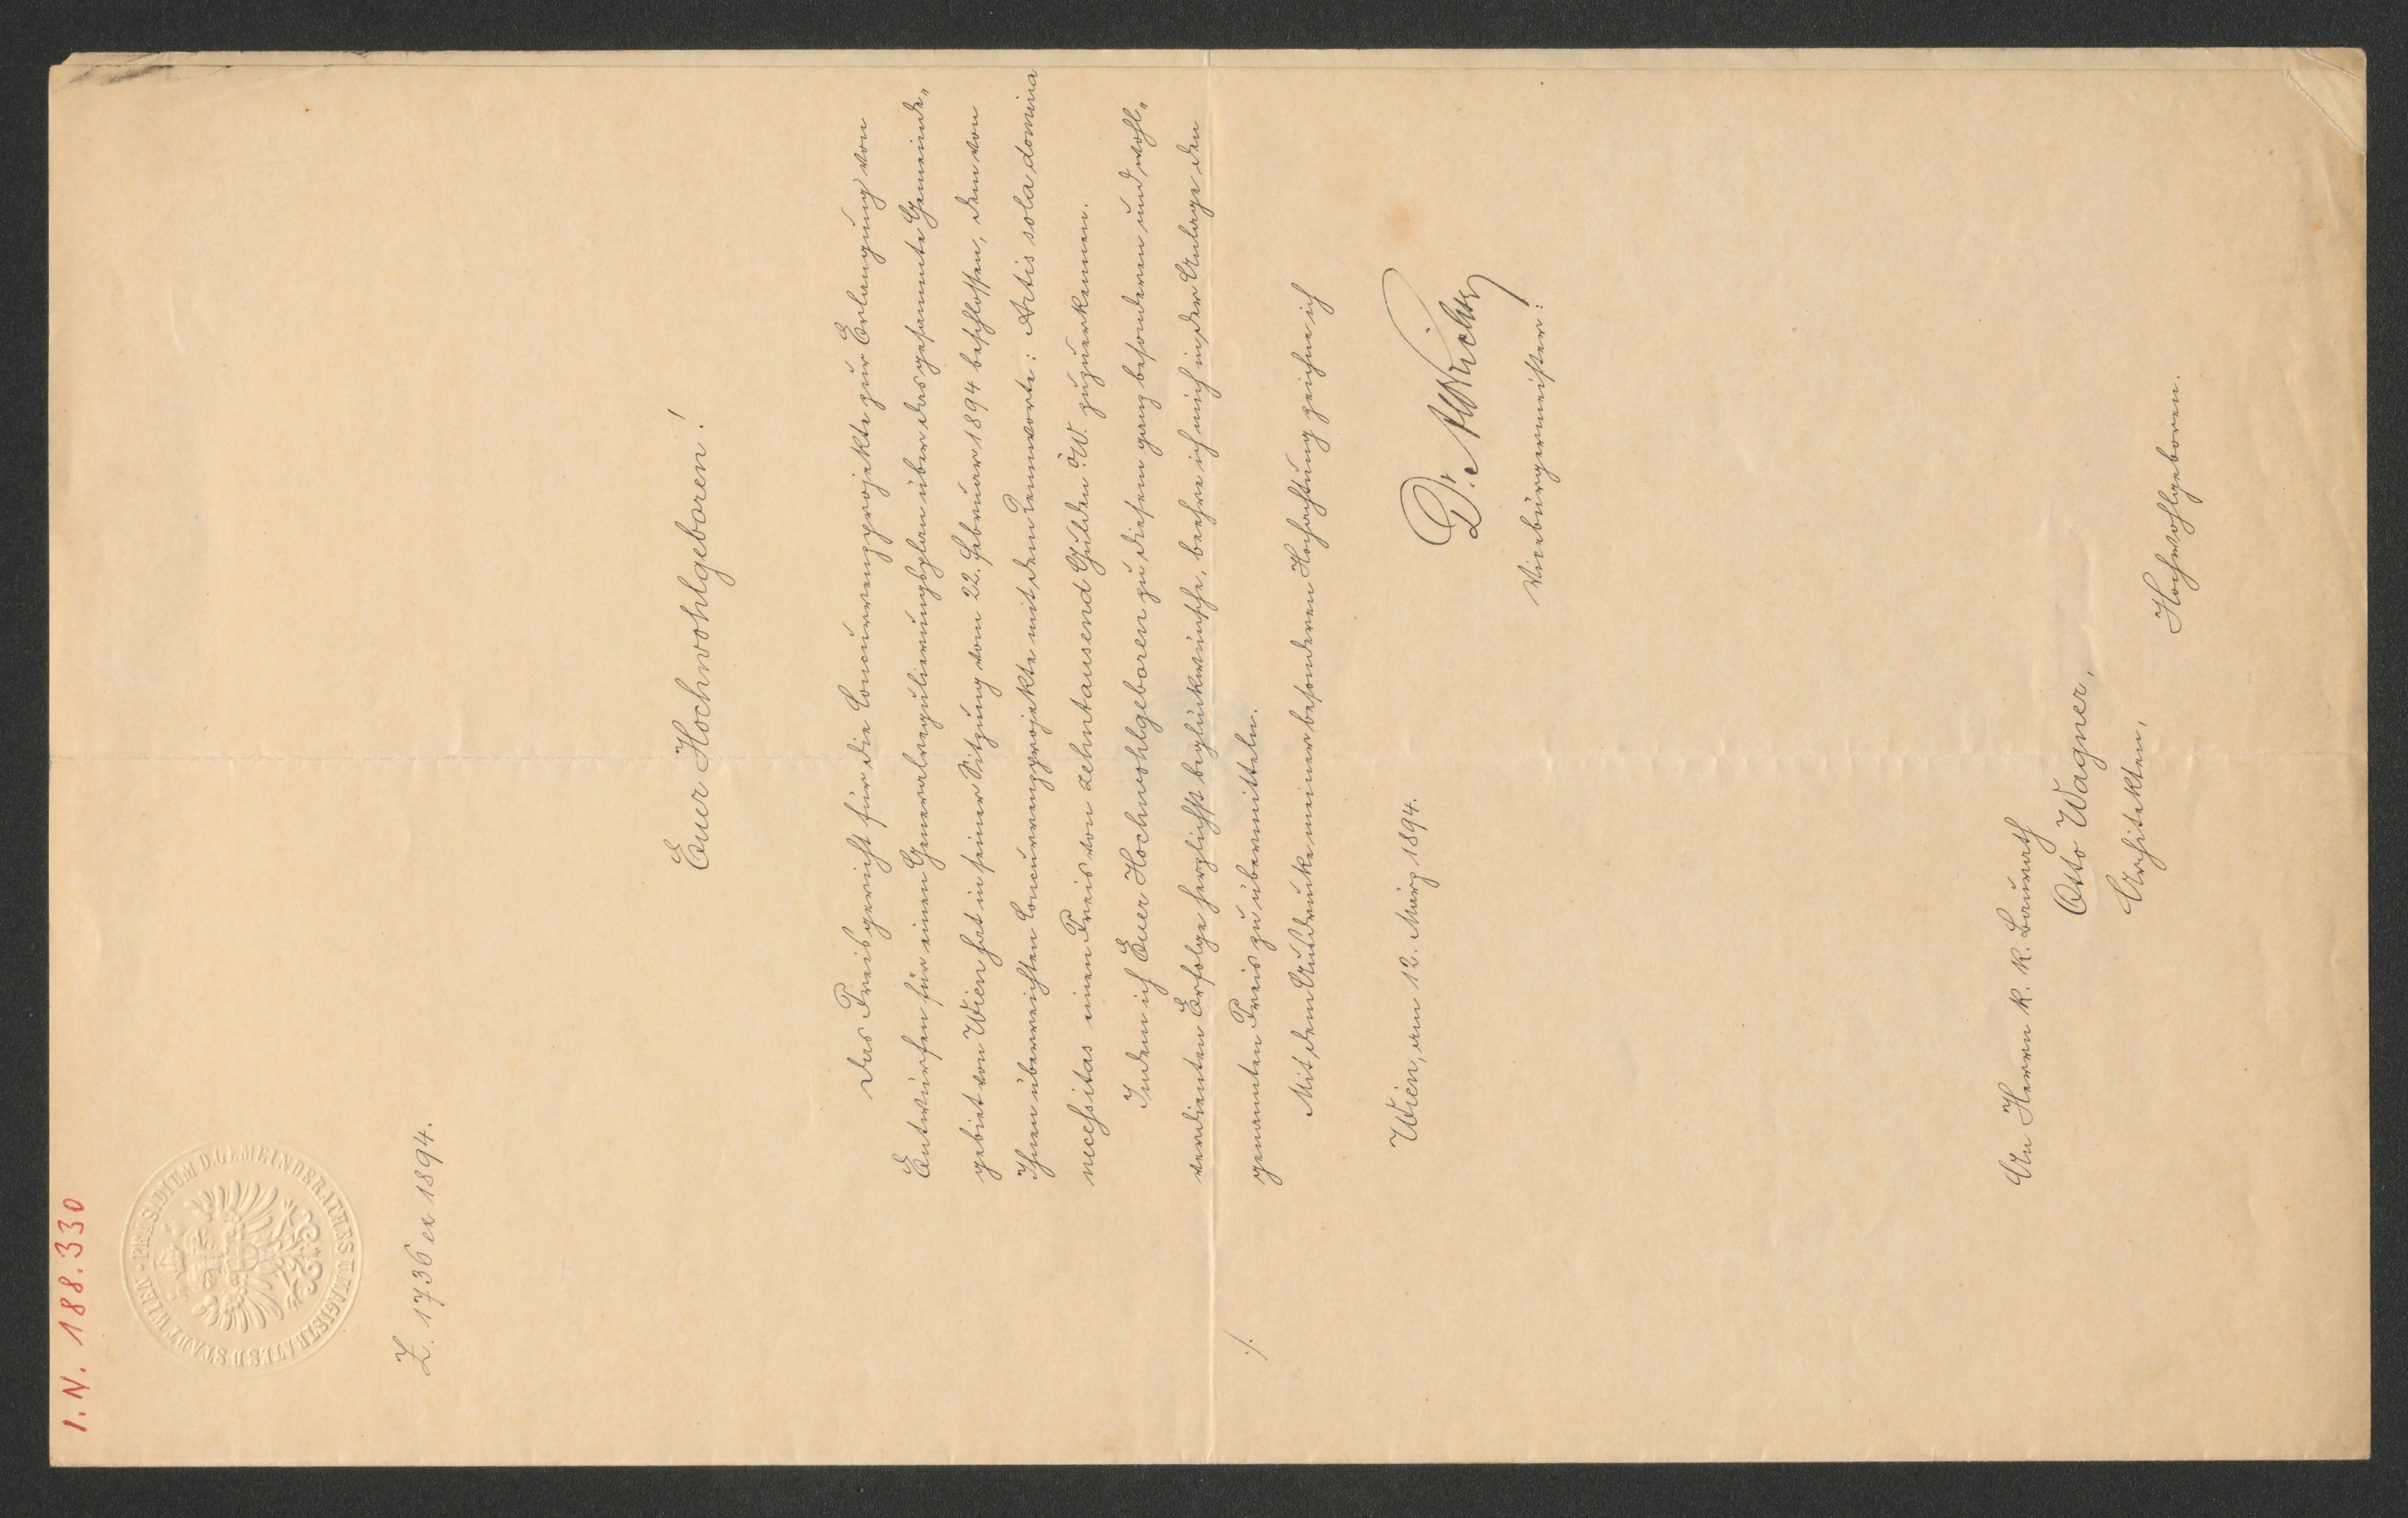 I. N. 188.330
PRAESIDIUM D. GEMEINDERATHES U. MAGISTRATES D. STADT WIEN
Z. 1736 ex 1894.
Euer Hochwohlgeboren!
Das Preisgericht für die Concurrenzprojekte zur Erlangung von
Entwürfen für einen Generalregulierungsplan über das gesammte Gemeinde„
gebiet von Wien hat in seiner Sitzung vom 22. Februar 1894 beschlossen, dem von
Ihnen überreichten Concurrenzprojekte mit dem Kennworte: Artis sola domina
necessitas einen Preis von zehntausend Gulden ö. W. zuzuerkennen.
Indem ich Euer Hochwohlgeboren zu diesem ganz besonderen und wohl„
verdienten Erfolge herzlichst beglückwünsche, beehre ich mich in der Anlage den
./. genannten Preis zu übermitteln.
Mit dem Ausdrucke meiner besonderen Hochachtung zeichne ich
Wien, am 12. März 1894.
Dr. Richter
Vicebürgermeister:
An Herrn k. k. Baurath
Otto Wagner,
Architekten,
Hochwohlgeboren.